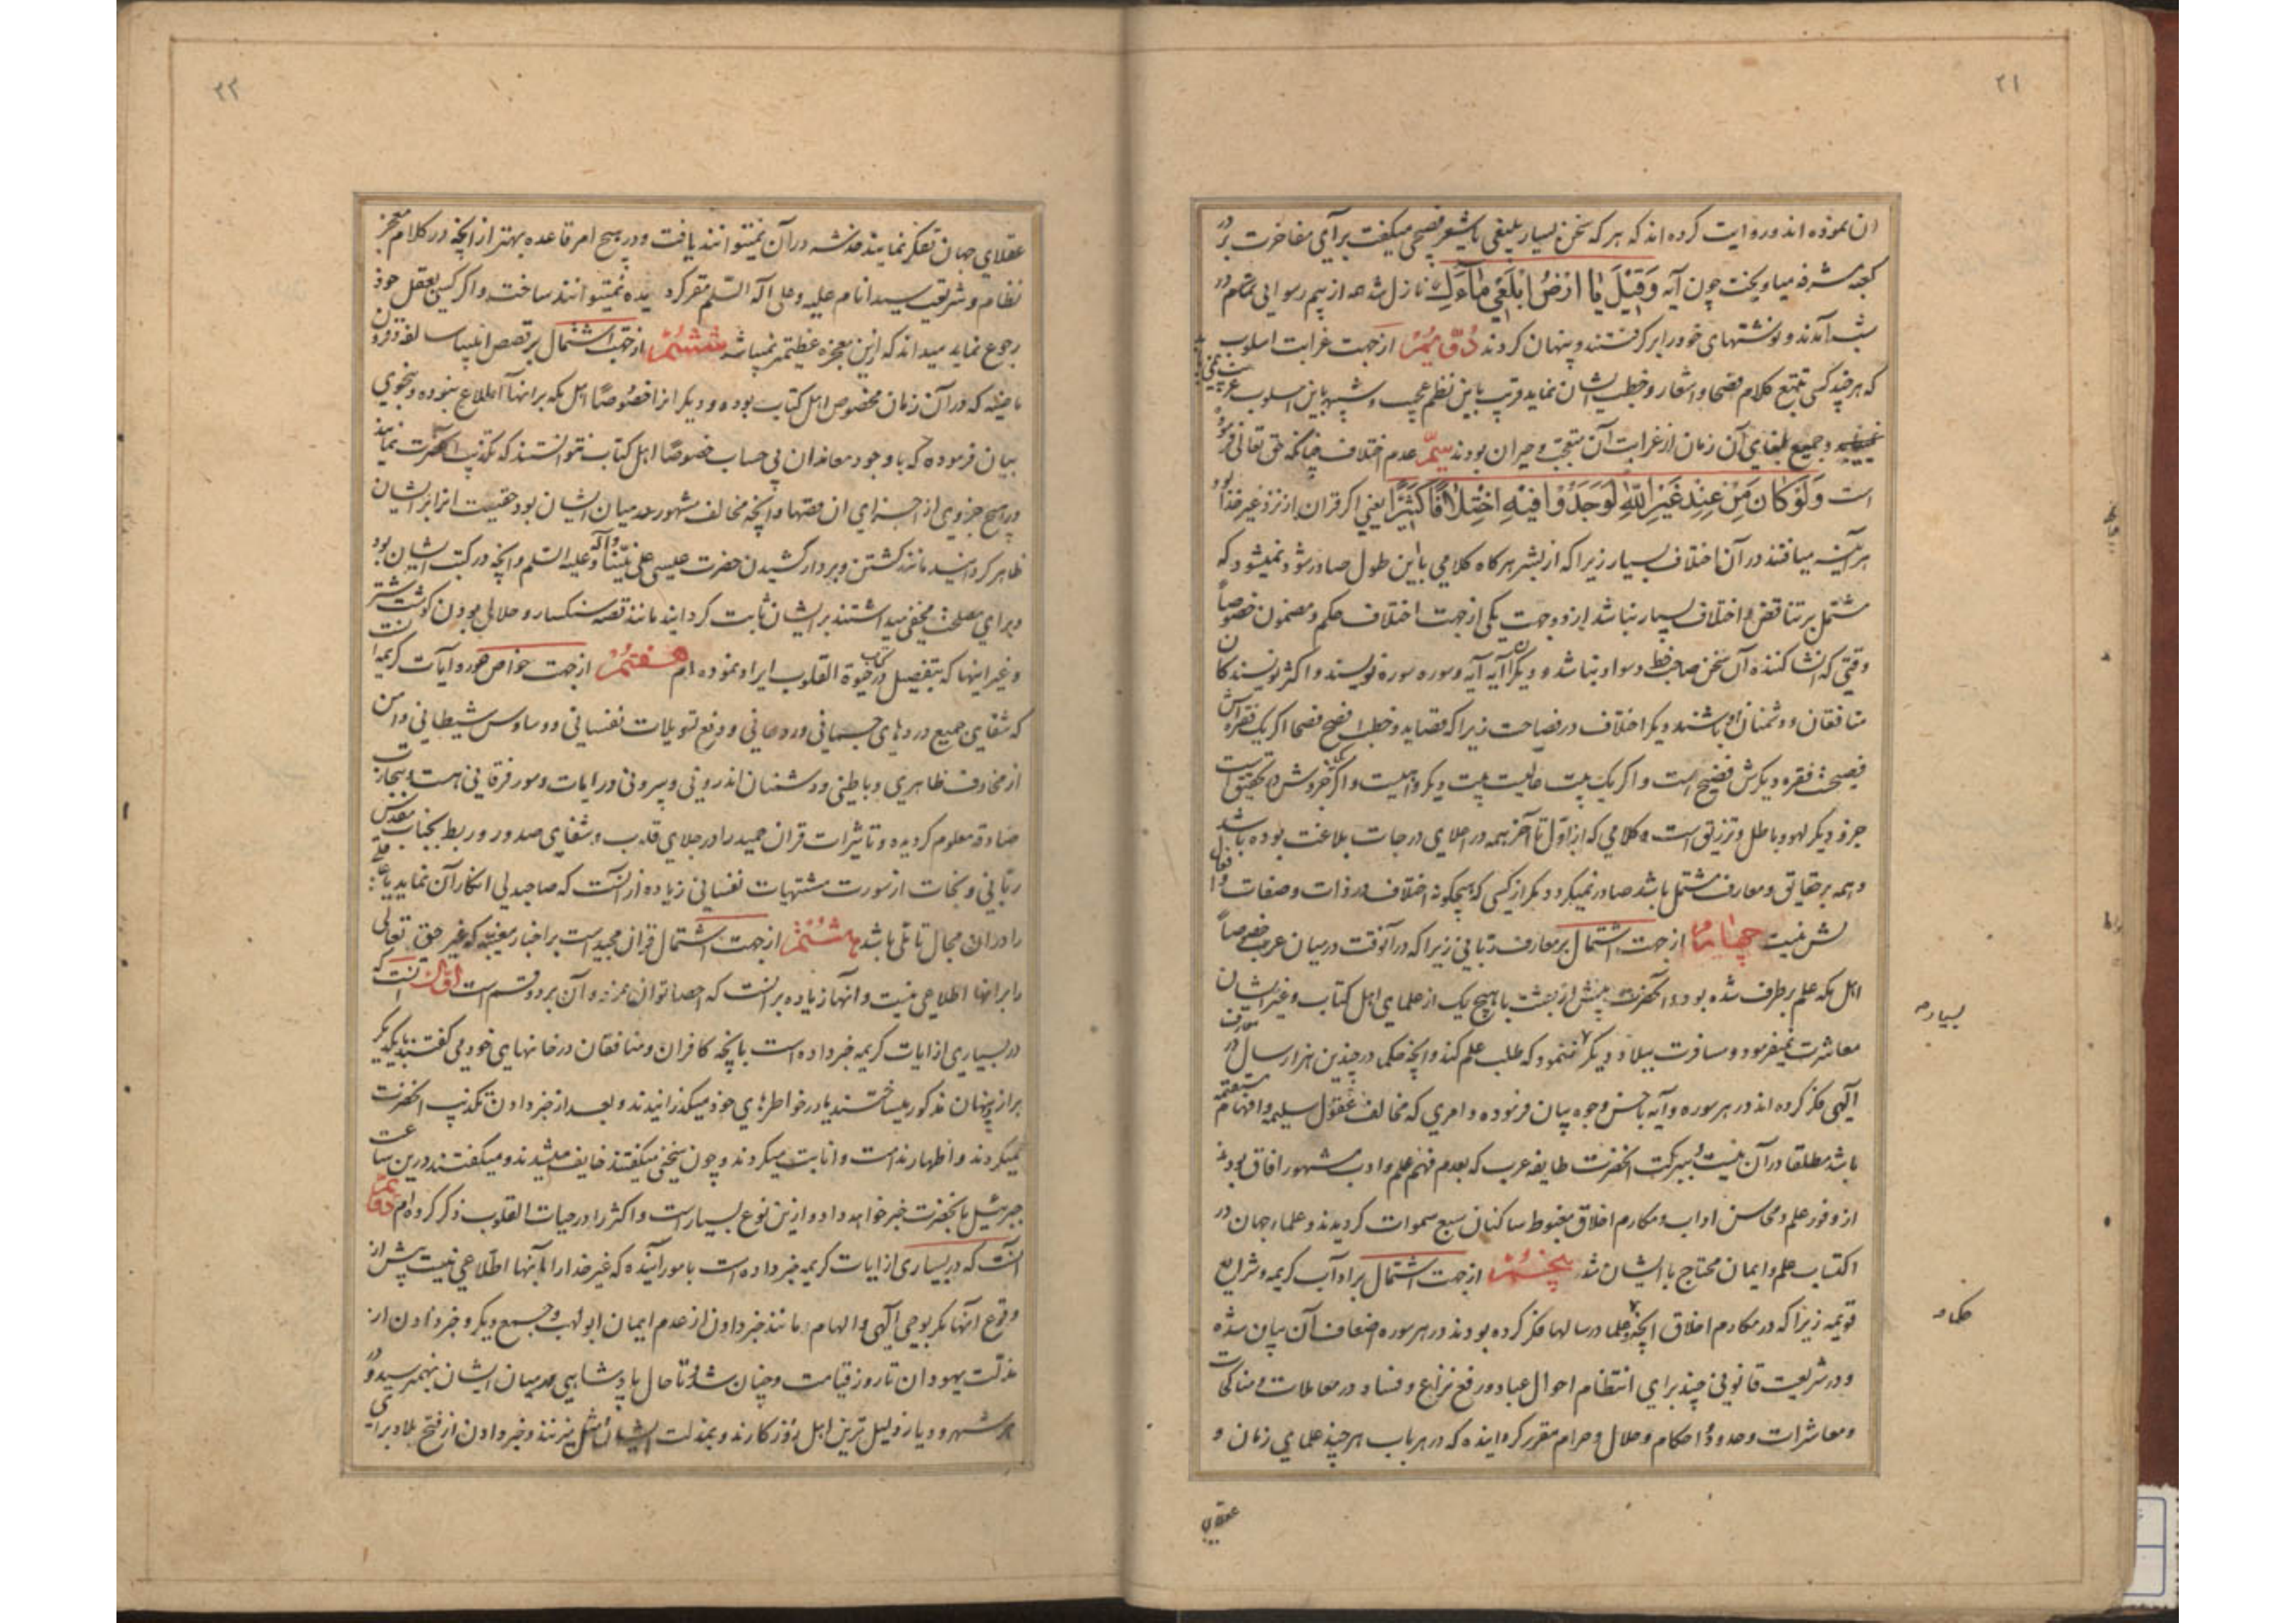 ۲۱
ان نموده اند و روایت کرده اند که هر که سخن بسیار بلیغی یا شعر فصیحی میگفت برای مفاخرت بر در
کعبه مشرفه میاویخت چون آیه وَقِیلَ یٰا اَرْضُ ابْلَعِی مٰاءَکِ نازل شد همه از بیم رسوائی تمام در
شب آمدند و نوشتهای خود را برکرفتند و پنهان کردند دُوُّمْ از جهت غرابت اسلوب
که هر چند کسی تتبع کلام فصحا و اشعار و خطب ایشان نماید قریب باین نظم عجیب و شبیه باین اسلوب غریب
و جمیع بلغای آن زمان از غرابت آن متعجب و حیران بودند سیّم عدم اختلاف چنانکه حق تعالی فرموده
است وَلَوْ کٰانَ مِنْ عِنْدِ غَیْرِ اللّٰهِ لَوَجَدُوا فِیهِ اخْتِلٰافًا کَثِیرًا یعنی اگر قران از نزد غیر خدا بود
هر آینه میافتند در آن اختلاف بسیار زیرا که از بشر هر کاه کلامی باین طول صادر شود نمیشود که
مشتمل بر تناقض و اختلاف بسیار نباشد از دو جهت یکی از جهت اختلاف حکم و مضمون خصوصاً
وقتی که انشا کننده آن سخن صاحب خط و سواد نباشد و دیگر آیه آیه و سوره سوره نویسند و اکثر نویسندکان
منافقان و دشمنان او باشند دیگر اختلاف در فصاحت زیرا که قصاید و خطب افصح فصحا اگر یک فقره اش
فصیحست فقره دیکرش فضیح است و اگر یک بیت عالیست بیت دیگر واهیست و اگر جزوش تحقیق است
جزو دیگر لهو و باطل و تزریق است و کلامی که از اول تا آخر همه در اعلای درجات بلاغت بوده باشد
و همه بر حقایق و معارف مشتمل باشد صادر نمیکردد مگر از کسی که هیچگونه اختلاف در ذات و صفات و افعال
اش نیست چهارم از جهت اشتمال بر معارف ربانی زیرا که در آنوقت در میان عرب خصوصاً
اهل مکه علم برطرف شده بود و آنحضرت پیش از بعثت با هیچ یک از علمای اهل کتاب و غیر ایشان
معاشرت نمیفرمود و مسافرت ببلاد دیگر ننمود که طلب علم کند و آنچه حکما در چندین هزار سال در معارف
آلهی فکر کرده اند در هر سوره و آیه باحسن وجوه بیان فرموده و امری که مخالف عقول سلیم و افهام مستقیمه
باشد مطلقا در آن نیست و ببرکت آنحضرت طایفه عرب که بعدم فهم علم و ادب مشهور افاق بودند
از وفور علم و محاسن اداب و مکارم اخلاق مغبوط ساکنان سبع سموات کردیدند و علماء جهان در
اکتساب علم و ایمان محتاج با ایشان شدند پنجم از جهت اشتمال بر اداب کریمه و شرایع
قویمه زیرا که در مکارم اخلاق آنچه علما در سالها فکر کرده بودند در هر سوره اضعاف آن بیان شده
و در شریعت قانونی چند برای انتظام احوال عباد و رفع نزاع و فساد در معاملات و مناکحات
و معاشرات و حدود و احکام و حلال و حرام مقرر کردانیده که در هر باب هر چند علمای زمان و
بسیار
حکما
عقلای
۲۲
عقلای جهان تفکر نمایند خدشه در آن نمیتوانند یافت و در هیچ امر قاعده بهتر از آنچه در کلام معجز
نظام و شریعت سید انام علیه و علی آله السلم مقرر کردیده نمیتوانند ساخت و اگر کسی بعقل خود
رجوع نماید میداند که ازین معجزه عظیمتر نمیباشد ششم از جهت اشتمال بر قصص انبیا سالفه و قرون
ماضیه که در آن زمان مخصوص اهل کتاب بوده و دیگرانرا خصوصا اهل مکه بر انها اطلاع نبوده و بنحوی
بیان فرموده که با وجود معاندان بی حساب خصوصا اهل کتاب نتوانستند که تکذیب آنحضرت نمایند
در هیچ جزوی از اجزای ان قصها و آنچه مخالف مشهور میان ایشان بود حقیقت انرا بر ایشان
ظاهر کردانید مانند کشتن و بردار کشیدن حضرت عیسی علی نبینا و آله و علیه السلم و آنچه در کتب ایشان بود
و برای مصلحت مخفی میداشتند بر ایشان ثابت کردانید مانند قصه سنکسار و حلال بودن کوشت شتر
و غیر اینها که بتفصیل در کتاب حیوة القلوب ایراد نموده ام هفتم از جهت خواص سور و آیات کریمه
که شفای جمیع دردهای جسمانی و روحانی و دفع تسویلات نفسانی و وساوس شیطانی و امن
از مخاوف ظاهری و باطنی و دشمنان اندرونی و بیرونی در ایات و سور فرقانی هست و بتجارب
صادقه معلوم کردیده و تاثیرات قران مجید را در جلای قلوب و شفای صدور و ربط بجناب مقدس
ربانی و نجات از سورت مشتهیات نفسانی زیاده از آنست که صاحبدلی انکار آن نماید یا عاقلی
را در ان مجال تاملی باشد هشتم از جهت اشتمال قران مجید است بر اخبار مغیبه که غیر حق تعالی
را بر انها اطلاعی نیست و انها زیاده بر انست که احصا توان نمود و آن بر دو قسم است اول آنست که
در بسیاری از ایات کریمه خبر داده است بانچه کافران و منافقان در خانهای خود می گفتند با یکدیگر
براز و پنهان مذکور میساختند یا در خاطرهای خود میکذرانیدند و بعد از خبر دادن تکذیب انحضرت
نمیکردند و اظهار ندامت و انابت میکردند و چون سخنی میکفتند خایف میشدند و میکفتند درین ساعت
جبرئیل بآنحضرت خبر خواهد داد و ازین نوع بسیار است و اکثر را در حیات القلوب ذکر کرده ام دوم
آنست که در بسیاری از ایات کریمه خبر داده است بامور آینده که غیر خدا را بآنها اطلاعی نیست پیش از
وقوع آنها مگر بوحی آلهی و الهام مانند خبر دادن از عدم ایمان ابو لهب و جمیع دیگر و خبر دادن از
مذلت یهودان تا روز قیامت و چنان شد و تا حال پادشاهی در میان ایشان بهم نرسیده و در
هر شهر و دیار ذلیل ترین اهل روزکارند و بمذلت ایشان مثل میزنند و خبر دادن از فتح بلاد برای